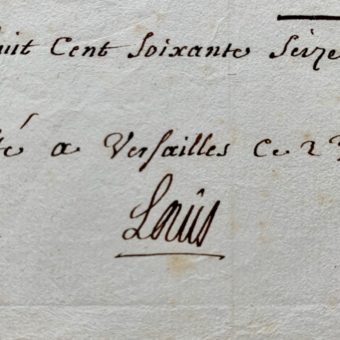 uit Cent Soixante Seize
té a Versailles Ce 2
Louis